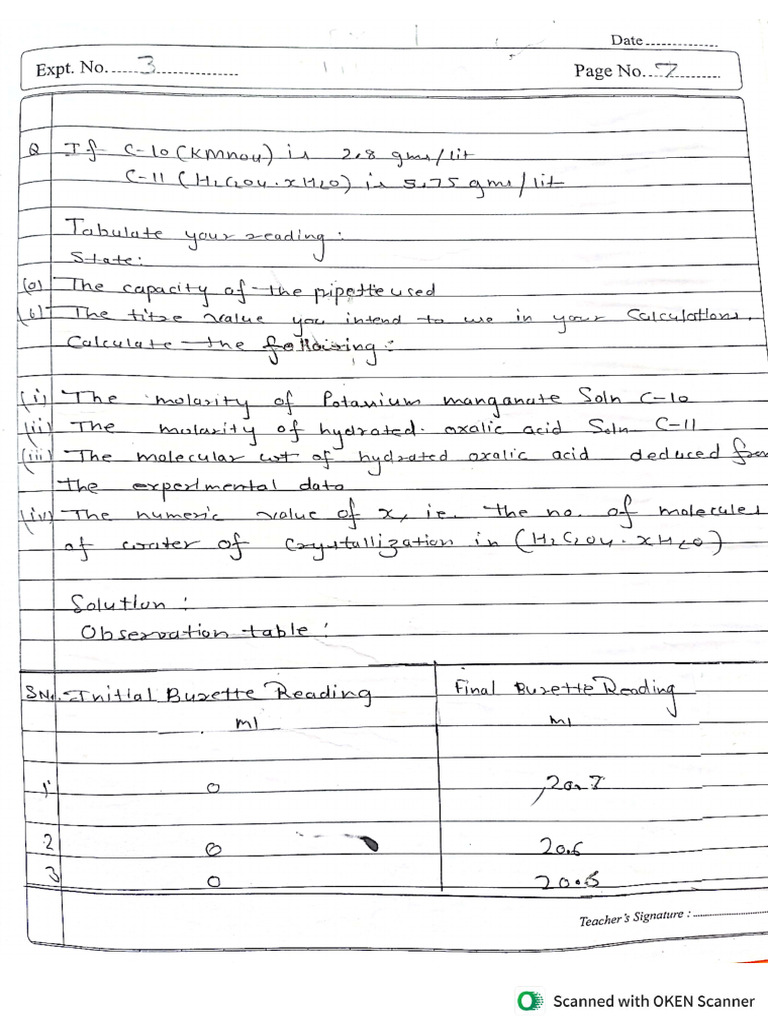 Date..............
Expt. No. 3
Page No. 7
Q If C-10 (KMnou) is 2.8 gms/lit
C-11 (H2C2O4.xH2O) is 5.75 gms/lit
Tabulate your reading:
State:
(a) The capacity of the pipette used
(b) The titre value you intend to use in your Calculations.
Calculate the following:
(i) The molarity of Potassium manganate Soln C-10
(ii) The molarity of hydrated oxalic acid Soln C-11
(iii) The molecular wt of hydrated oxalic acid deduced from
the experimental data
(iv) The numeric value of x, ie. the no. of molecules
of water of Crystallization in (H2C2O4.xH2O)
Solution:
Observation table:
SNo. Initial Burette Reading Final Burette Reading
ml ml
1 0
2 0 20.6
3 0
Teacher's Signature :
Scanned with OKEN Scanner